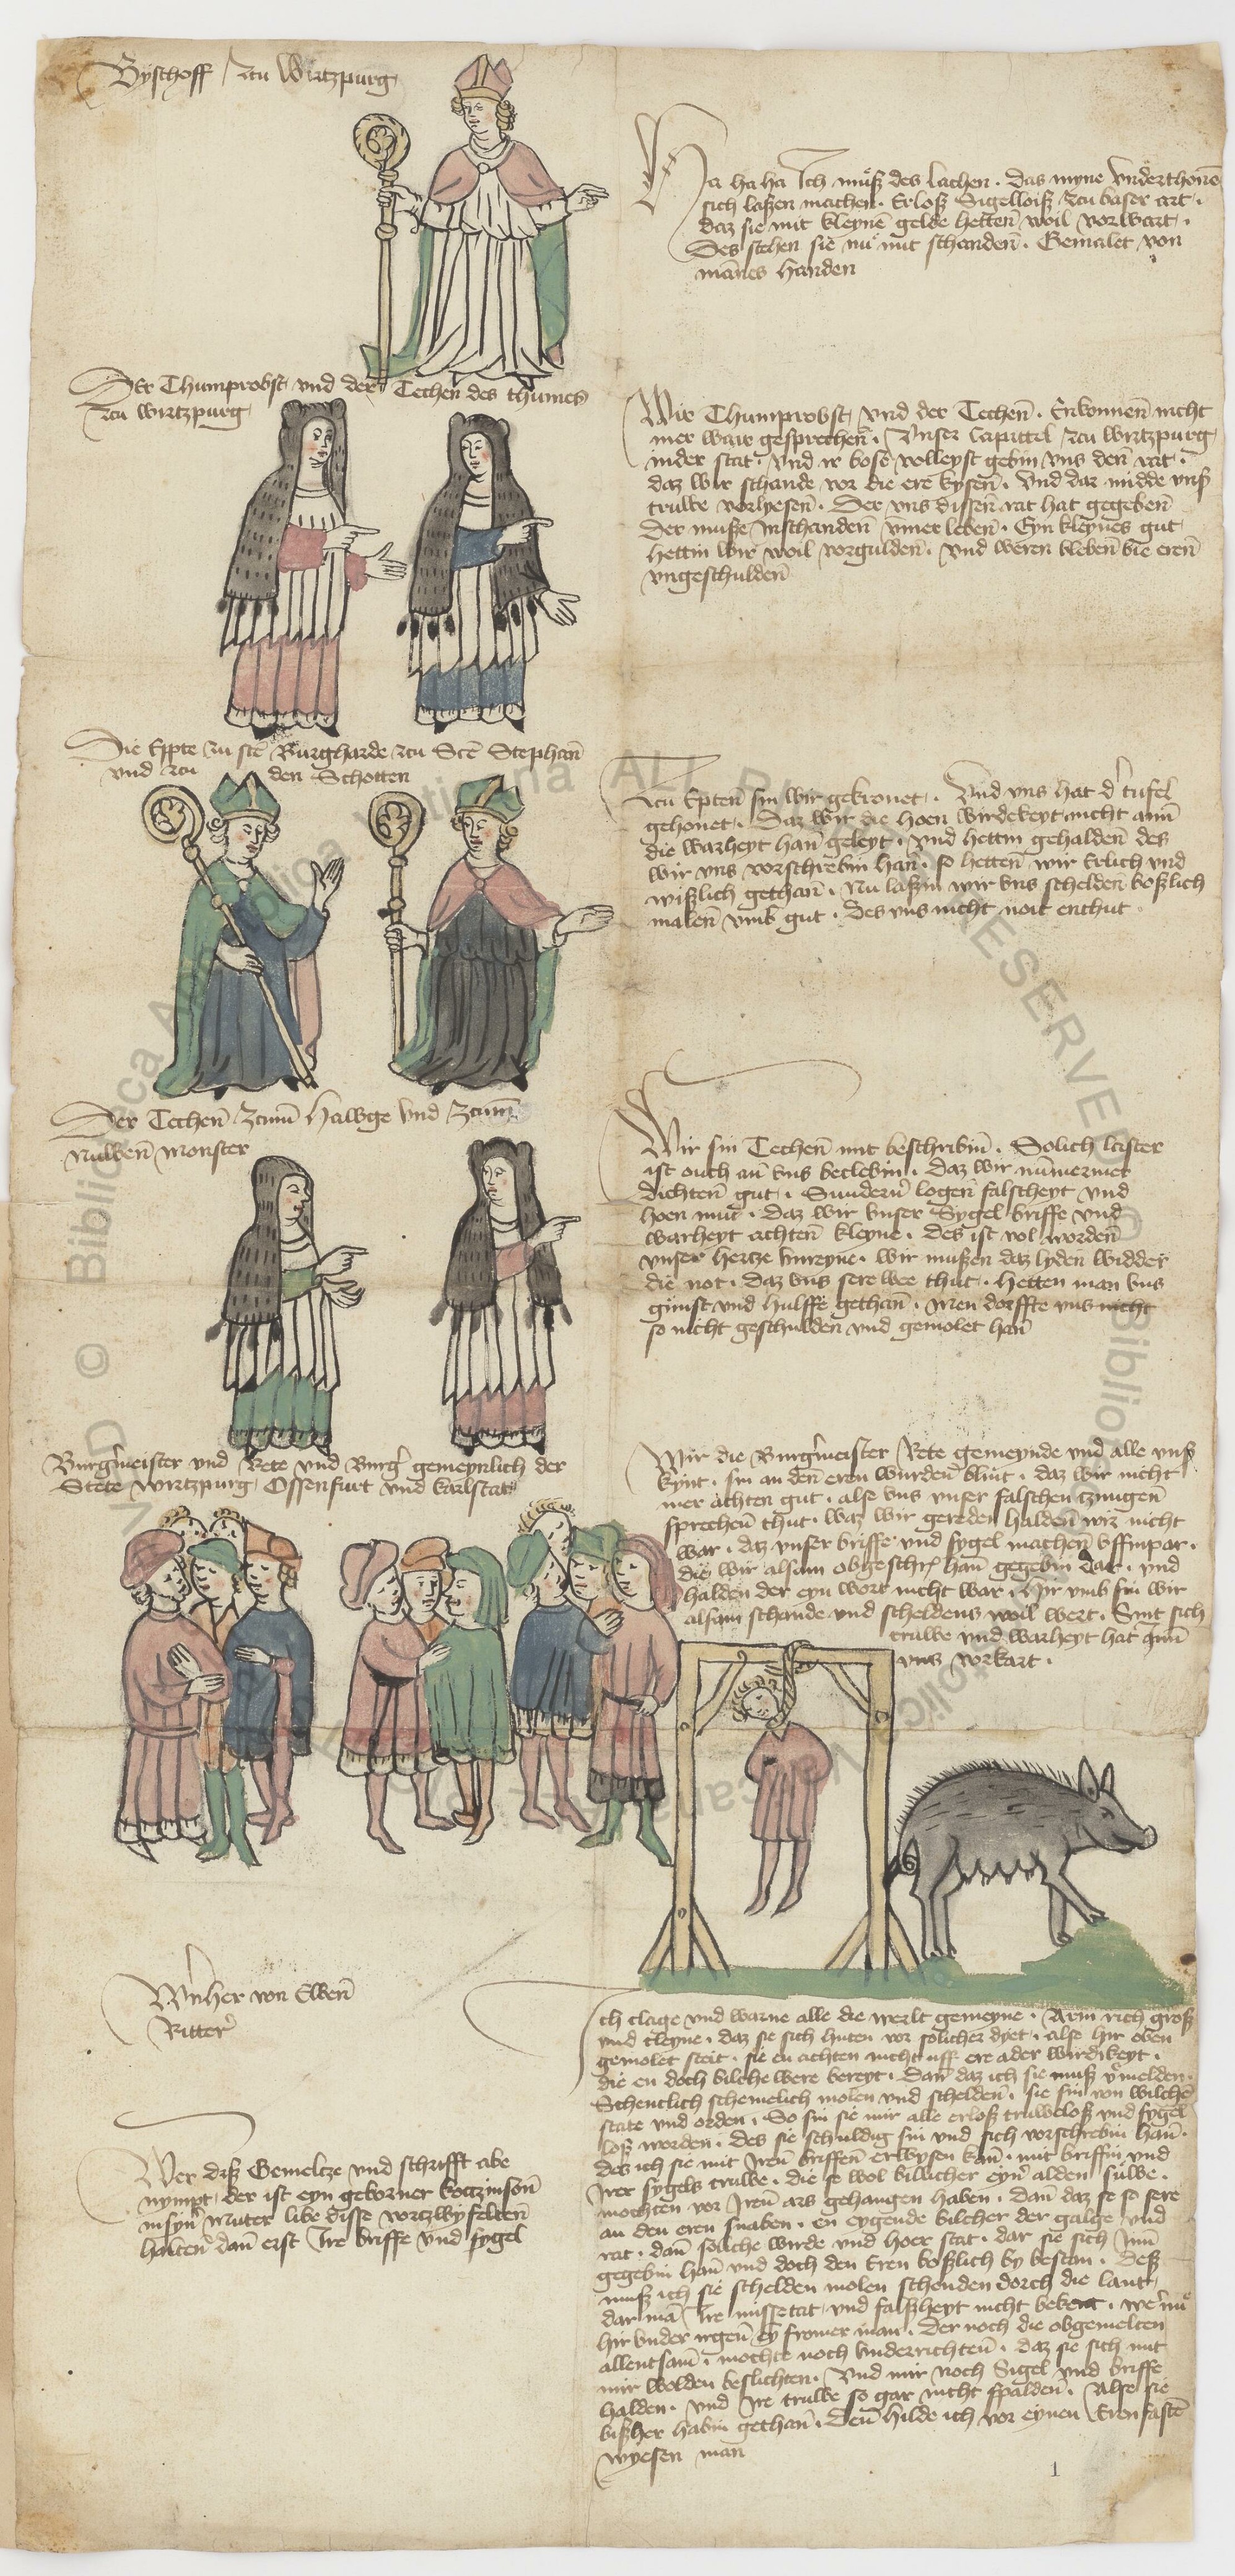 Byschoff zcu Wirtzpurg
Ha ha ha Ich muͦß des lachen · Das myne vnderthone
sich laßen machen · Erloß Sigelloiß zcu baser art ·
daz sie mit kleynē gelde hettē woil vorwart ·
Des stehen sie nu mit schandē · Gemalet von
mānes handen
Der Thumprobst vnd der Techen des thumes
zcu wirtzpurg
Wir Thumprobst vnd der Techen · Enkonnen nicht
mer wair gesprechen · Vnser Capittel zcu wirtzpurg
inder stat · vnd ir bose volleyst gebin vns den rat ·
daz wir schande vor die ere kysen · vnd dar midde vnß
truwe vorlyesen · Der vns dissen rat hat gegeben
Der muße inschanden vmer leben · Eyn kleynes gut
hettin wir woil vorgulden · vnd weren bleben bie eren
vngeschulden
Die Eppte zu sēt Burgharde zcu Scē Stephan
vnd zcu den Schotten
Zcu Epten sin wir gekronet · Vnd vns hat d' tufel
gehonet · Daz wir die hoen wirdekeyt nicht ann
die warheyt han geleyt · vnd hettin gehalden des
wir vns vorschrebin han · so hetten wir Erlich vnd
wißlich gethan · Nu laßin wir vns schelden boßlich
malen vmb gut · des vns nicht noit enthut ·
Der Techen Zcum Hawge vnd Zcum
Nuwen Monster
Wir sin Techen mit beschribin · Solich laster
ist ouch an vns beclebin · daz wir nummermer
dichten gut · Sundern logen falscheyt vnd
hoen mut · daz wir vnser Sygel briffe vnd
warheyt achten kleyne · des ist vol worden
vnser hertze vnreyne · wir mußen daz lyden widder
die not · daz vns sere wee thut · hetten man vns
gunst vnd hulffe gethan · Men dorffte vns nicht
so nicht geschulden vnd gemolet han
Burg'meister vnd Rete vnd Burg' gemeynlich der
Stete wirtzpurg Ossenfurt vnd karlstat
Wir die Burg'meister Rete gemeynde vnd alle vnß
kynt · sin an den eren wurden blint · daz wir nicht
mer achten gut · alse vns vnser falschen tzungen
sprechen thut · waz wir gereden halden wir nicht
war · daz vnser briffe vnd sygel machen vffinpar ·
die wir alsam obgeschr' han gegebin dar · vnd
halden der eyn wort nicht war · Hir vmb sin wir
alsam schande vnd scheldens woil wert · Sint sich
truwe vnd warheyt hat ann
vns vorkart ·
W'nher von Elben
Ritter
Ich clage vnd warne alle die werlt gemeyne · Arm rich groß
vnd cleyne · daz sie sich huten vor solicher dyet · alse hir oben
gemolet steit · sie en achten nicht uff ere ader wirdikeyt ·
die en doch bilche were bereyt · Dan daz ich sie muß v'melden ·
Schentlich schemelich molen vnd schelden · sie sin von wilchē
state vnd orden · So sin sie mir alle erloß truweloß vnd sygel
loß worden · des sie schuldig sin vnd sich vorschrebin han ·
des ich sie mit Iren briffen erwysen kan · mit briffin vnd
Irer sygels truwe · die se wol billicher eyn' alden suwe ·
mochten vor Iren ars gehangen haben · dan daz se so sere
an den eren snaben · en eygende bilcher der galge vnd
rat · dan soliche wirde vnd hoer stat · dar sie sich Inn
gegebin han vnd doch den Eren boßlich by bestan · deß
muß ich sie schelden molen schenden dorch die lant
dar mā Ire missetat vnd falßheyt nicht bekent · we' nu
hir vnder irgen ey fromer man · der noch die obgemelten
allentsam · mochte noch vnderrichten · daz sie sich mit
mir wolden beslichten · Vnd mir noch Sigel vnd briffe
halden · vnd Ire truwe so gar nicht spalden · Alse sie
bißher habin gethan · Den hilde ich vor eynen Erenfastē
wyesen man
Wer diß Gemeltze vnd schrifft abe
nympt · der ist eyn geborner kotzinson
insyn' muter libe disse vortzwyfelten
halten dan erst Ire briffe vnd sygel
1
© Biblioteca Apostolica Vaticana ALL RIGHTS RESERVED